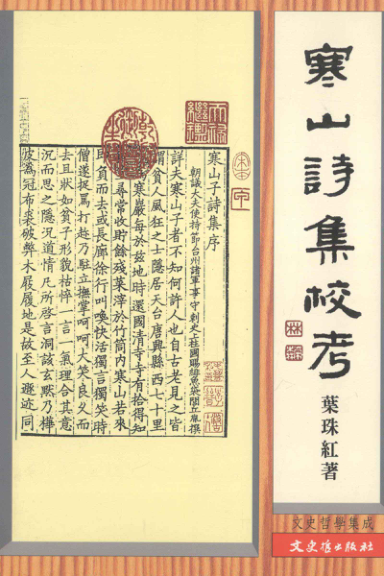 寒山詩集校考
葉珠紅著
文史哲學集成
文史哲出版社
寒山子詩集序
朝議大夫使持節台州諸軍事守刺史上柱國賜緋魚袋閭丘胤撰
詳夫寒山子者不知何許人也自古老見之皆
謂貧人風狂之士隱居天台唐興縣西七十里
寒巖每於茲地時還國清寺寺有拾得知
尋常收貯餘殘菜滓於竹筒內寒山若來
即負而去或長廊徐行叫喚快活獨言獨笑時
僧遂捉罵打趁乃駐立撫掌呵呵大笑良久而
去且狀如貧子形貌枯悴一言一氣理合其意
沉而思之隱況道情凡所啓言洞該玄默乃樺
皮為冠布裘破弊木屐履地是故至人遯迹同